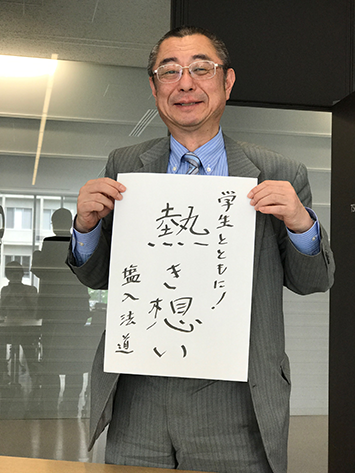 学生とともに!
熱き想い
塩入法道